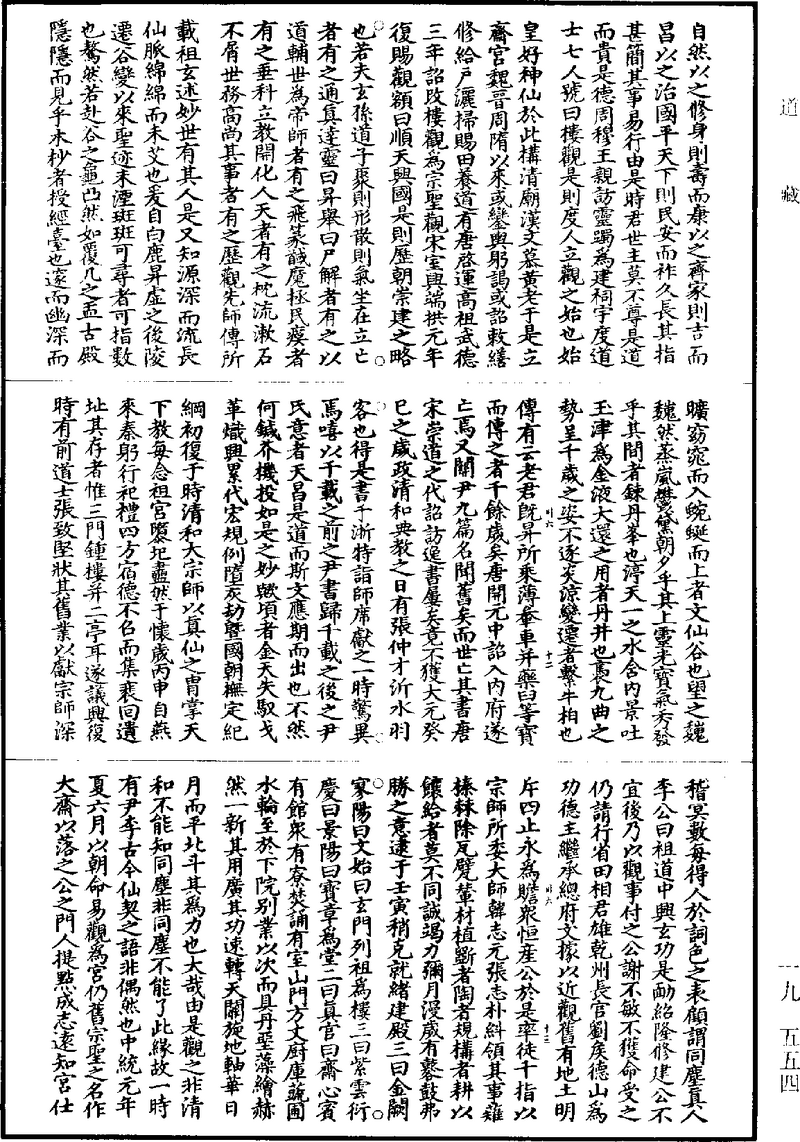 道藏
自然以之修身則壽而康以之齊家則吉而
昌以之治國平天下則民安而祚久長其指
甚簡其事易行由是時君世主莫不尊是道
而貴是德周穆王親訪靈躅為建祠宇度道
士七人號曰樓觀是則度人立觀之始也始
皇好神仙於此構清廟漢文慕黄老于是立
齋宮魏晉周隋以來或鑾輿躬謁或詔敕繕
修給戶灑掃賜田養道有唐啓運高祖武德
三年詔改樓觀為宗聖觀宋室興端拱元年
復賜觀額曰順天興國是則歷朝崇建之略
也若夫玄孫道子聚則形散則氣坐在立亡
者有之通真達靈曰昇舉曰尸解者有之以
道輔世為帝師者有之飛篆馘魔拯民瘼者
有之垂科立教開化人天者有之枕流漱石
不屑世務高尚其事者有之歷觀先師傳所
載祖玄述妙世有其人是又知源深而流長
仙脈綿綿而未艾也爰自白鹿昇虛之後陵
遷谷變以來聖迹未湮班班可尋者可指數
也驁然若赴谷之龜凸然如覆几之盂古殿
隱隱而見乎木杪者授經臺也邃而幽深而
曠窈窕而入蜿蜒而上者文仙谷也望之巍
巍然蒸嵐欎黛朝夕乎其上靈光寶氣秀發
乎其間者鍊丹峯也渟天一之水含内景吐
玉津為金液大還之用者丹井也裛九曲之
勢呈千歲之姿不逐炎涼變遷者繫牛柏也
十二
傳有云老君既昇所乘薄軬車并藥臼等寶
而傳之者千餘歲矣唐開元中詔入内府遂
亡焉又關尹九篇名聞舊矣而世亡其書唐
宋崇道之代詔訪逸書屢矣竟不獲大元癸
巳之歲政清和典教之日有張仲才沂水羽
客也得是書于浙持詣師席獻之一時驚異
焉嘻以千載之前之尹書歸千載之後之尹
氏意者天昌是道而斯文應期而出也不然
何鍼芥機投如是之妙歟頃者金天失馭戈
革熾興累代宏規例墮灰劫暨國朝撫定紀
綱初復于時清和大宗師以真仙之胄掌天
下教每念祖宮隳圮盡然于懷歲丙申自燕
來秦躬行祀禮四方宿德不召而集裴回遺
址其存者惟三門鍾樓并二亭耳遂議興復
時有前道士張致堅狀其舊業以獻宗師深
稽冥數每得人於詞色之表顧謂同塵真人
李公曰祖道中興玄功是勔紹隆修建公不
宜後乃以觀事付之公謝不敏不獲命受之
仍請行省田相君雄乾州長官劉矦德山為
功德主繼承總府文據以近觀舊有地土明
十三
斥四止永為贍衆恒産公於是率徒千指以
宗師所委大師韓志元張志朴糾領其事薙
榛棘除瓦甓輦材植斵者陶者規構者耕以
饟給者莫不同誠竭力彌月漫歲有鼛鼓弗
勝之意逮于壬寅稍克就緒建殿三曰金闕
寥陽曰文始曰玄門列祖為樓三曰紫雲衍
慶曰景陽曰寶章為堂二曰真官曰齋心賓
有館衆有寮焚誦有室山門方丈厨庫蔬圃
水輪至於下院別業以次而具丹堊藻繪赫
然一新其用廣其功速轉天關旋地軸華日
月而平北斗其為力也大哉由是觀之非清
和不能知同塵非同塵不能了此緣故一時
有尹李古今仙契之語非偶然也中統元年
夏六月以朝命易觀為宮仍舊宗聖之名作
大齋以落之公之門人提點成志遠知宮仕
一九 五五四